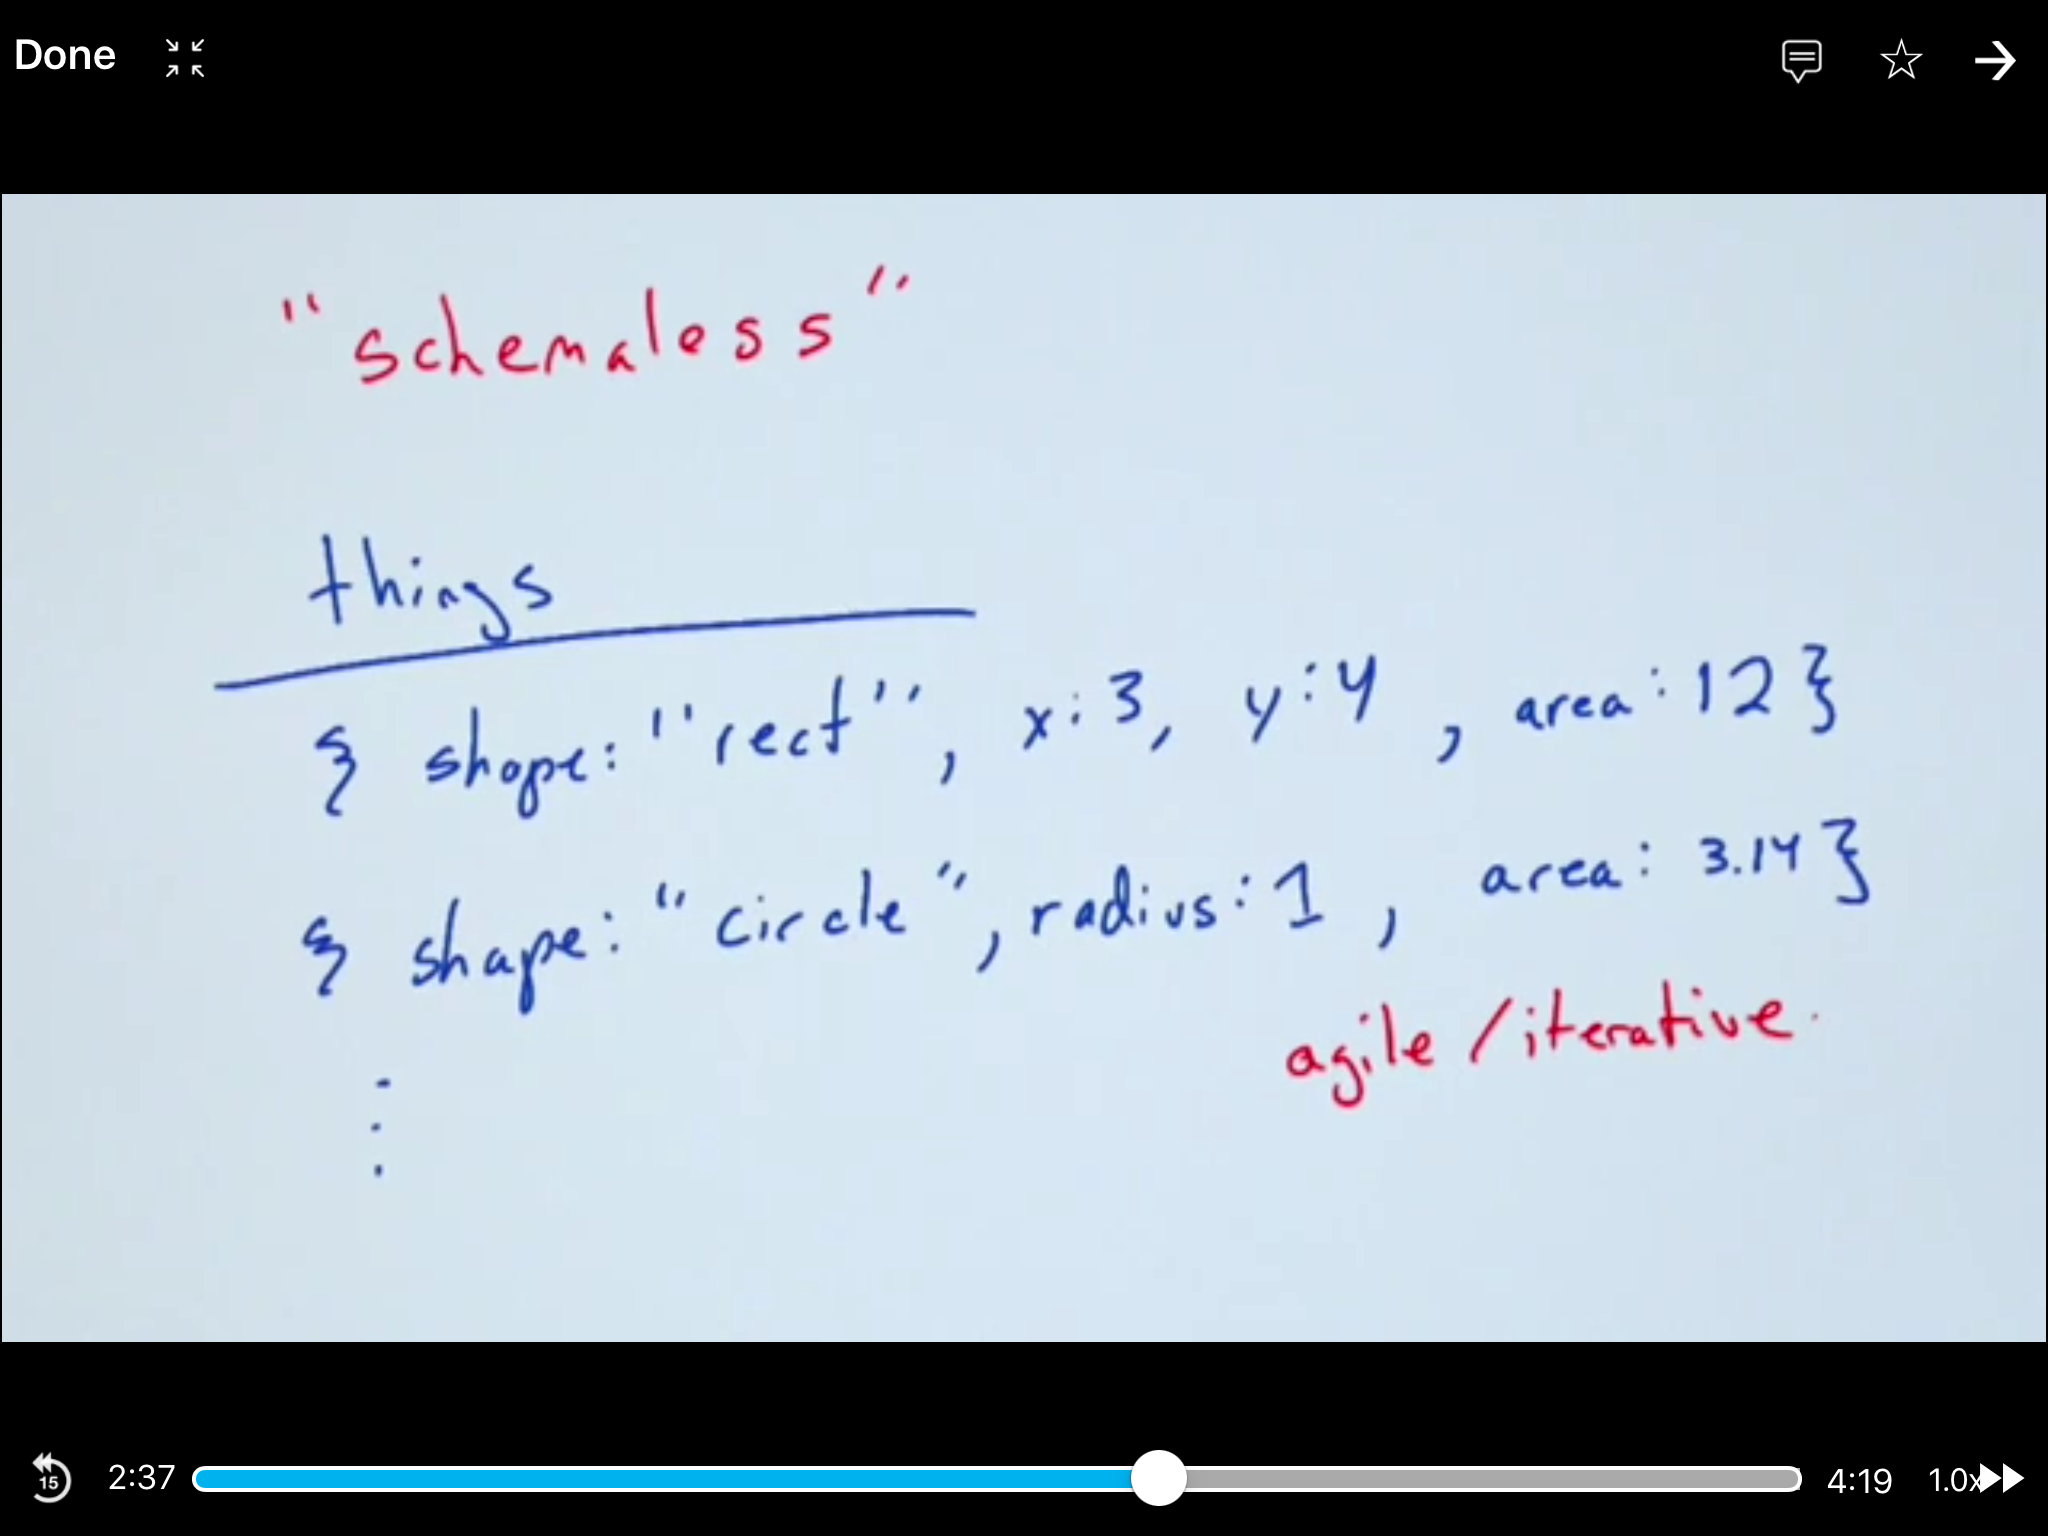 Done
"schemaless"
things
{ shape: "rect", x: 3, y: 4, area: 12 }
{ shape: "circle", radius: 1, area: 3.14 }
agile / iterative.
15 2:37 4:19 1.0x